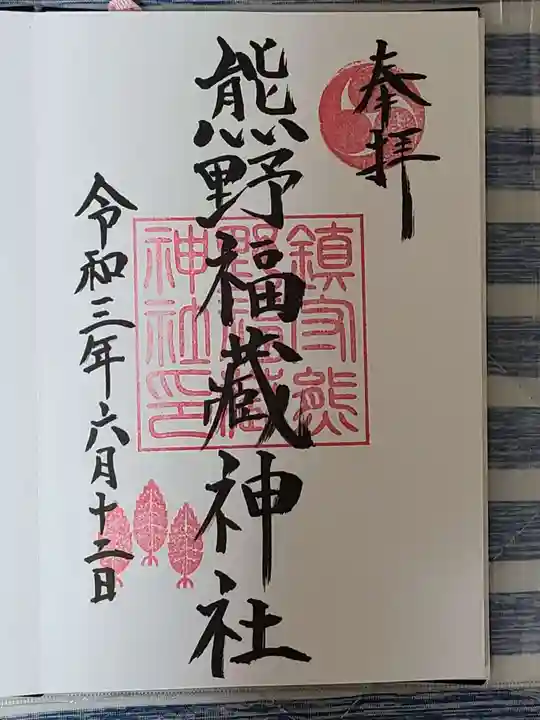 奉拝
熊野福藏神社
鎮守熊
神社印
令和三年六月十二日